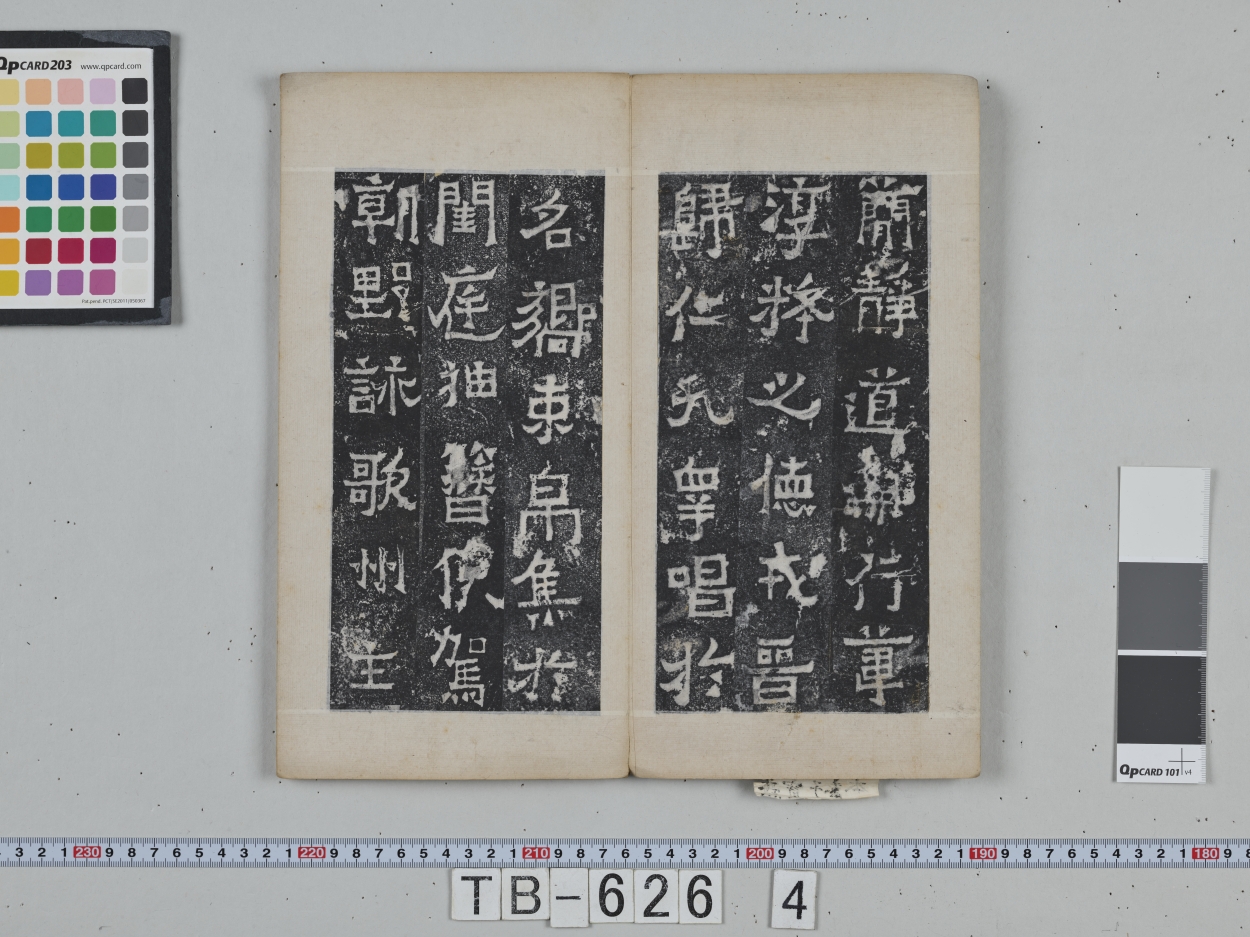 蕳靜道兼行葦
淳粹之德戎晉
歸仁九皋唱於
名嚮束帛集於
閨庭抽簪俟駕
朝野詠歌州主
QPCARD 203 www.qpcard.com
Pat.pend. PCT/SE2011/050367
QPCARD 101 v4
3 2 1 230 9 8 7 6 5 4 3 2 1 220 9 8 7 6 5 4 3 2 1 210 9 8 7 6 5 4 3 2 1 200 9 8 7 6 5 4 3 2 1 190 9 8 7 6 5 4 3 2 1 180 9 8
TB-626 4